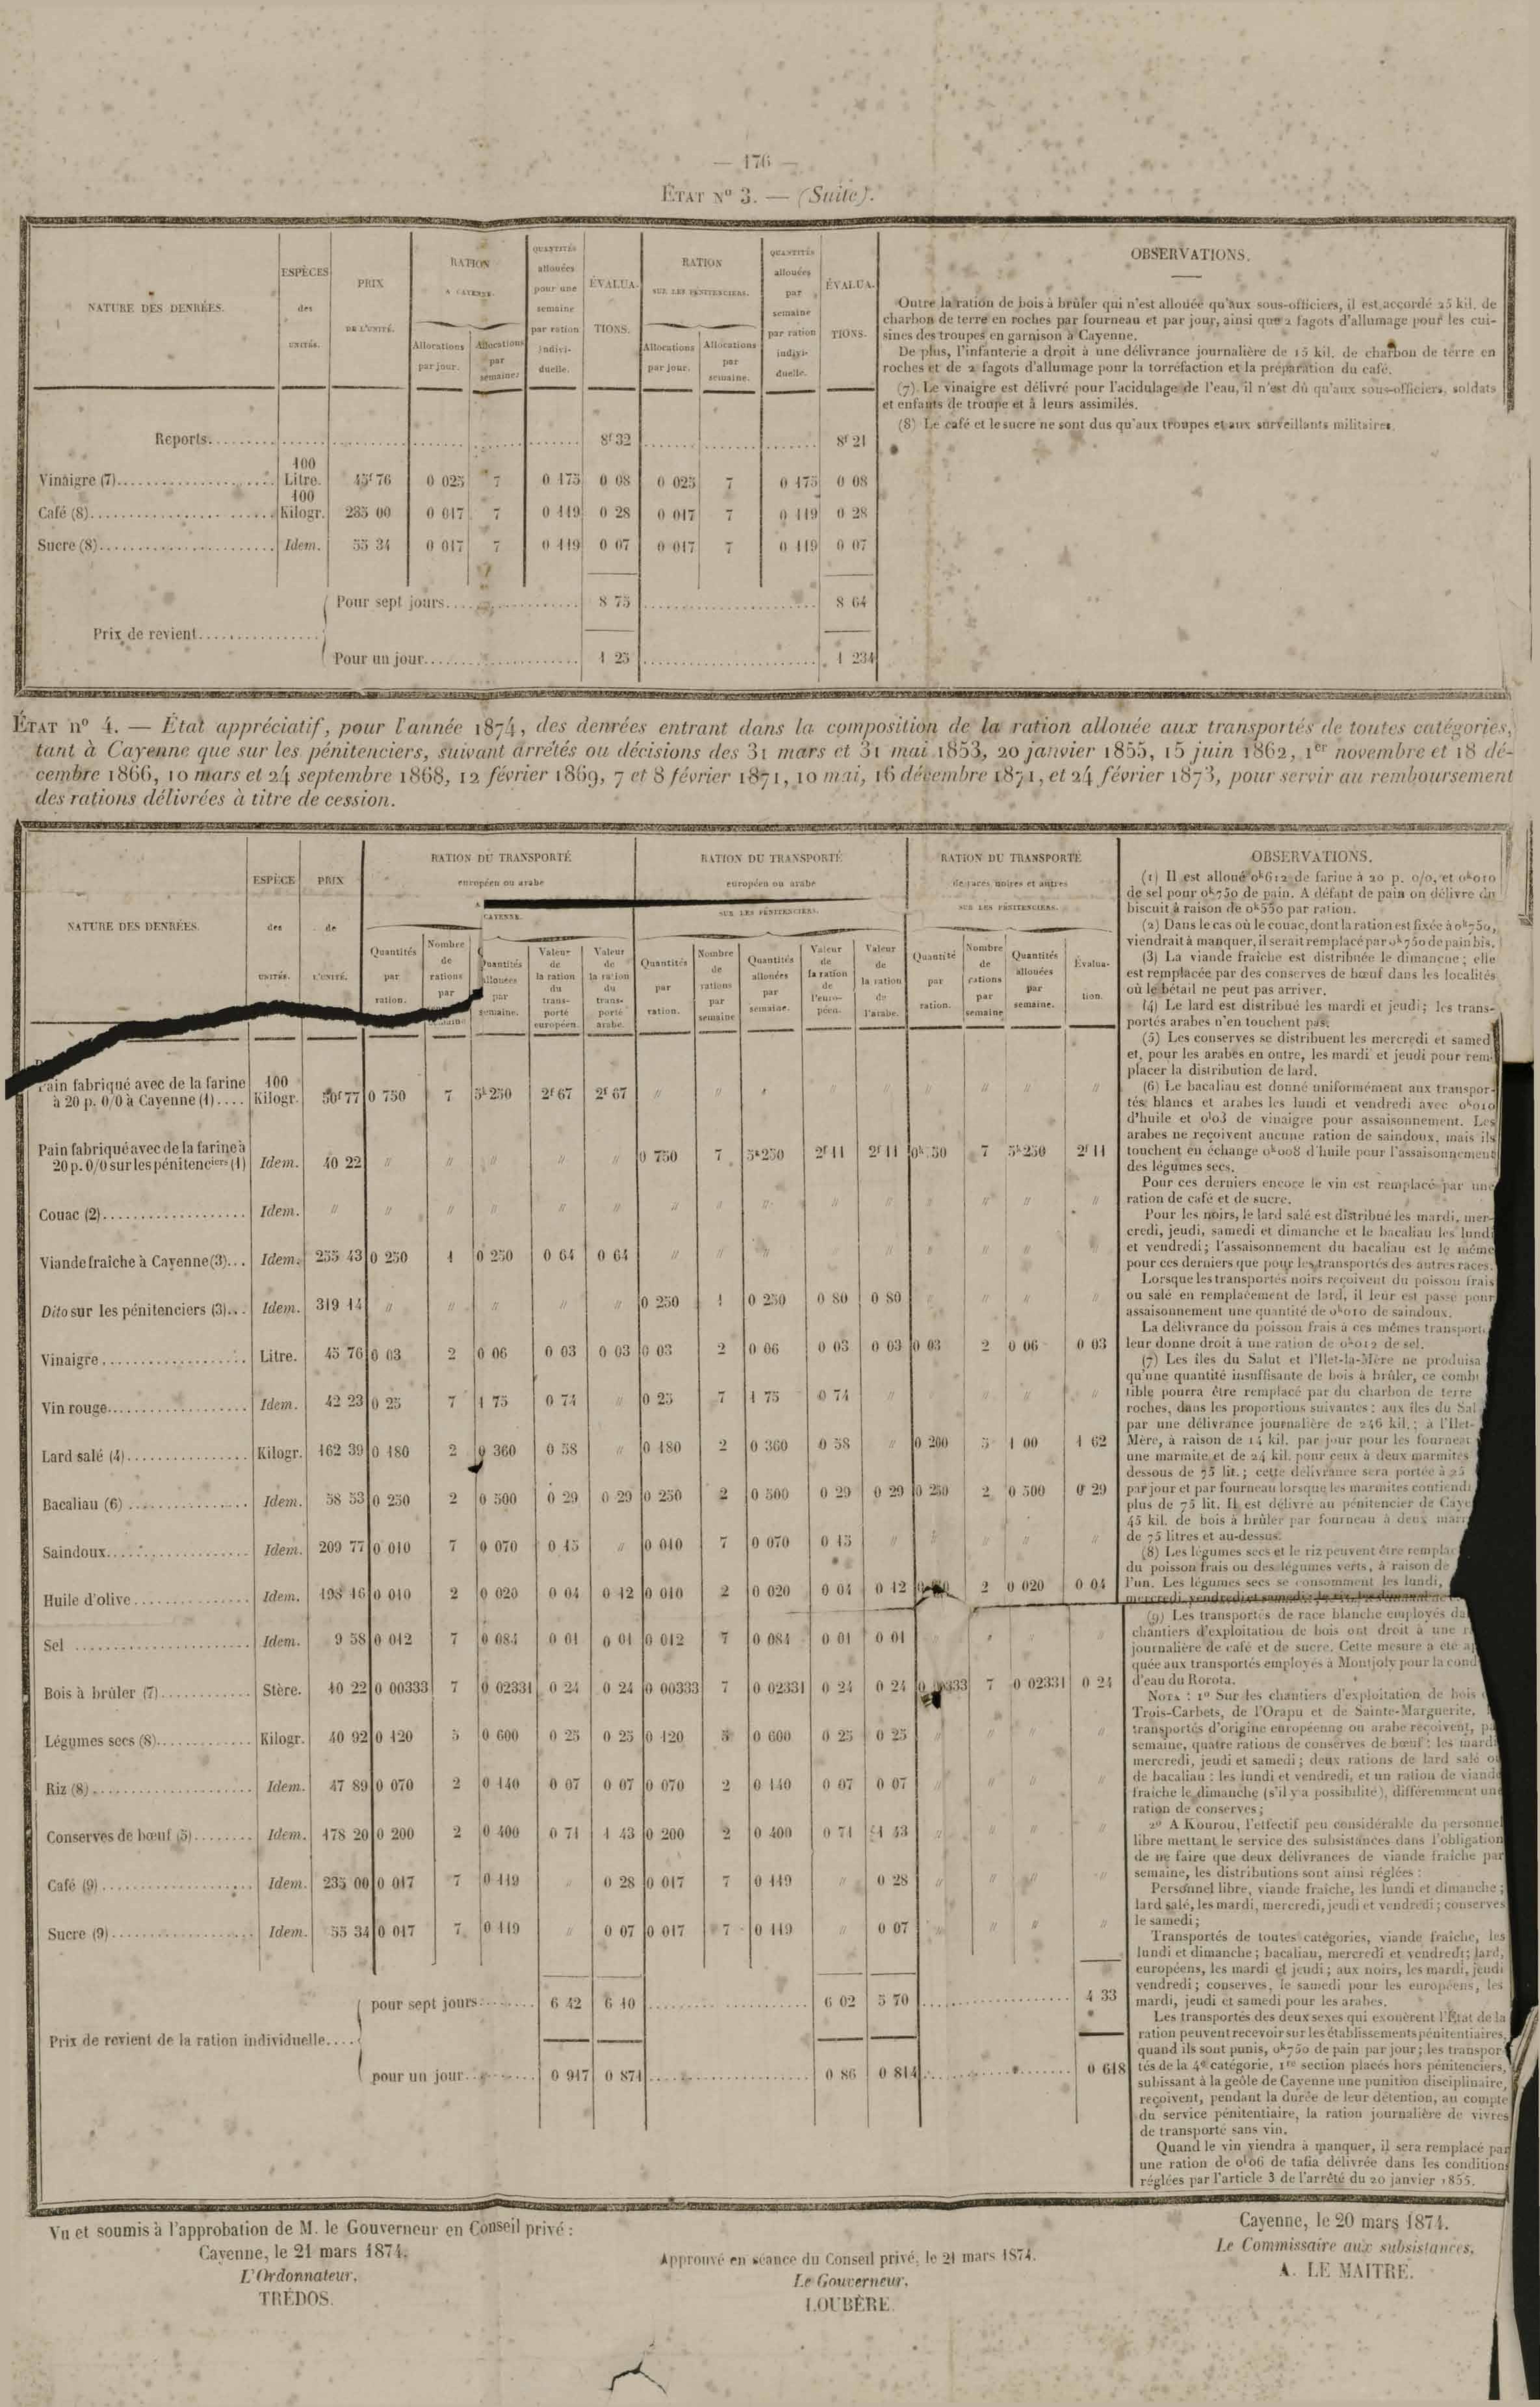 — 176 —
ÉTAT Nº 3. — (Suite).
NATURE DES DENRÉES.
ESPÈCES des UNITÉS.
PRIX DE L'UNITÉ.
RATION A CAYENNE.
Allocations par jour.
Allocations par semaine.
QUANTITÉS allouées pour une semaine par ration indivi-duelle.
ÉVALUA-TIONS.
RATION SUR LES PÉNITENCIERS.
Allocations par jour.
Allocations par semaine.
QUANTITÉS allouées par semaine par ration indivi-duelle.
ÉVALUA-TIONS.
Reports. 8f 32 8f 21
Vinaigre (7) 100 Litre. 45f 76 0 025 7 0 175 0 08 0 025 7 0 175 0 08
Café (8) 100 Kilogr. 235 00 0 017 7 0 119 0 28 0 017 7 0 119 0 28
Sucre (8) Idem. 55 34 0 017 7 0 119 0 07 0 017 7 0 119 0 07
Prix de revient
Pour sept jours 8 75 8 64
Pour un jour 1 25 1 234
OBSERVATIONS.
Outre la ration de bois à brûler qui n'est allouée qu'aux sous-officiers, il est accordé 25 kil. de
charbon de terre en roches par fourneau et par jour, ainsi que 2 fagots d'allumage pour les cui-
sines des troupes en garnison à Cayenne.
De plus, l'infanterie a droit à une délivrance journalière de 15 kil. de charbon de terre en
roches et de 2 fagots d'allumage pour la torréfaction et la préparation du café.
(7) Le vinaigre est délivré pour l'acidulage de l'eau, il n'est dû qu'aux sous-officiers, soldats
et enfants de troupe et à leurs assimilés.
(8) Le café et le sucre ne sont dus qu'aux troupes et aux surveillants militaires.
ÉTAT nº 4. — État appréciatif, pour l'année 1874, des denrées entrant dans la composition de la ration allouée aux transportés de toutes catégories,
tant à Cayenne que sur les pénitenciers, suivant arrêtés ou décisions des 31 mars et 31 mai 1853, 20 janvier 1855, 15 juin 1862, 1er novembre et 18 dé-
cembre 1866, 10 mars et 24 septembre 1868, 12 février 1869, 7 et 8 février 1871, 10 mai, 16 décembre 1871, et 24 février 1873, pour servir au remboursement
des rations délivrées à titre de cession.
NATURE DES DENRÉES.
ESPÈCE des UNITÉS.
PRIX de L'UNITÉ.
RATION DU TRANSPORTÉ européen ou arabe A CAYENNE.
Quantités par ration.
Nombre de rations par semaine
Quantités allouées par semaine.
Valeur de la ration du trans-porté européen.
Valeur de la ration du trans-porté arabe.
RATION DU TRANSPORTÉ européen ou arabe SUR LES PÉNITENCIERS.
Quantités par ration.
Nombre de rations par semaine
Quantités allouées par semaine.
Valeur de la ration de l'euro-péen.
Valeur de la ration de l'arabe.
RATION DU TRANSPORTÉ de races noires et autres SUR LES PÉNITENCIERS.
Quantité par ration.
Nombre de rations par semaine
Quantités allouées par semaine.
Évalua-tion.
Pain fabriqué avec de la farine
à 20 p. 0/0 à Cayenne (1) 100 Kilogr. 50f 77 0 750 7 5k 250 2f 67 2f 67 // // // // // // // // //
Pain fabriqué avec de la farine à
20 p. 0/0 sur les pénitenciers (1) Idem. 40 22 // // // // // 0 750 7 5k 250 2f 11 2f 11 7 5k 250 2f 11
Couac (2) Idem. // // // // // // // // // // // // // // //
Viande fraîche à Cayenne (3) Idem. 255 43 0 250 1 0 250 0 64 0 64 // // // // // // // // //
Dito sur les pénitenciers (3) Idem. 319 14 // // // // // 0 250 1 0 250 0 80 0 80 // // // //
Vinaigre Litre. 45 76 0 03 2 0 06 0 03 0 03 0 03 2 0 06 0 03 0 03 0 03 2 0 06 0 03
Vin rouge Idem. 42 23 0 25 7 1 75 0 74 // 0 25 7 1 75 0 74 // // // // //
Lard salé (4) Kilogr. 162 39 0 180 2 0 360 0 58 // 0 180 2 0 360 0 58 // 0 200 5 1 00 1 62
Bacaliau (6) Idem. 58 53 0 250 2 0 500 0 29 0 29 0 250 2 0 500 0 29 0 29 0 250 2 0 500 0 29
Saindoux Idem. 209 77 0 010 7 0 070 0 15 // 0 010 7 0 070 0 15 // // // // //
Huile d'olive Idem. 198 16 0 010 2 0 020 0 04 0 12 0 010 2 0 020 0 04 0 12 2 0 020 0 04
Sel Idem. 9 58 0 012 7 0 084 0 01 0 01 0 012 7 0 084 0 01 0 01 // // // //
Bois à brûler (7) Stère. 10 22 0 00333 7 0 02331 0 24 0 24 0 00333 7 0 02331 0 24 0 24 0 00333 7 0 02331 0 24
Légumes secs (8) Kilogr. 40 92 0 120 5 0 600 0 25 0 25 0 120 5 0 600 0 25 0 25 // // // //
Riz (8) Idem. 47 89 0 070 2 0 140 0 07 0 07 0 070 2 0 140 0 07 0 07 // // // //
Conserves de bœuf (5) Idem. 178 20 0 200 2 0 400 0 71 1 43 0 200 2 0 400 0 71 1 43 // // // //
Café (9) Idem. 235 00 0 017 7 0 119 // 0 28 0 017 7 0 119 // 0 28 // // // //
Sucre (9) Idem. 55 34 0 017 7 0 119 // 0 07 0 017 7 0 119 // 0 07 // // // //
Prix de revient de la ration individuelle
pour sept jours 6 42 6 10 6 02 5 70 4 33
pour un jour 0 917 0 871 0 86 0 814 0 618
OBSERVATIONS.
(1) Il est alloué 0k612 de farine à 20 p. 0/0, et 0k010
de sel pour 0k750 de pain. A défaut de pain on délivre du
biscuit à raison de 0k550 par ration.
(2) Dans le cas où le couac, dont la ration est fixée à 0k750,
viendrait à manquer, il serait remplacé par 0k750 de pain bis.
(3) La viande fraîche est distribuée le dimanche; elle
est remplacée par des conserves de bœuf dans les localités
où le bétail ne peut pas arriver.
(4) Le lard est distribué les mardi et jeudi; les trans-
portés arabes n'en touchent pas.
(5) Les conserves se distribuent les mercredi et samed
et, pour les arabes en outre, les mardi et jeudi pour rem-
placer la distribution de lard.
(6) Le bacaliau est donné uniformément aux transpor-
tés blancs et arabes les lundi et vendredi avec 0k010
d'huile et 0l03 de vinaigre pour assaisonnement. Les
arabes ne reçoivent aucune ration de saindoux, mais ils
touchent en échange 0k008 d'huile pour l'assaisonnement
des légumes secs.
Pour ces derniers encore le vin est remplacé par une
ration de café et de sucre.
Pour les noirs, le lard salé est distribué les mardi, mer-
credi, jeudi, samedi et dimanche et le bacaliau les lundi
et vendredi; l'assaisonnement du bacaliau est le même
pour ces derniers que pour les transportés des autres races.
Lorsque les transportés noirs reçoivent du poisson frais
ou salé en remplacement de lard, il leur est passé pour
assaisonnement une quantité de 0k010 de saindoux.
La délivrance du poisson frais à ces mêmes transport
leur donne droit à une ration de 0k012 de sel.
(7) Les îles du Salut et l'Ilet-la-Mère ne produisa
qu'une quantité insuffisante de bois à brûler, ce comb
tible pourra être remplacé par du charbon de terre
roches, dans les proportions suivantes : aux îles du Sal
par une délivrance journalière de 246 kil.; à l'Ilet-
Mère, à raison de 14 kil. par jour pour les fourneau
une marmite et de 24 kil. pour ceux à deux marmites
dessous de 75 lit.; cette délivrance sera portée à 25
par jour et par fourneau lorsque les marmites contiend
plus de 75 lit. Il est délivré au pénitencier de Caye
45 kil. de bois à brûler par fourneau à deux marm
de 75 litres et au-dessus.
(8) Les légumes secs et le riz peuvent être remplac
du poisson frais ou des légumes verts, à raison de
l'un. Les légumes secs se consomment les lundi,
mercredi, vendredi et samedi;
(9) Les transportés de race blanche employés da
chantiers d'exploitation de bois ont droit à une r
journalière de café et de sucre. Cette mesure a été ap
quée aux transportés employés à Montjoly pour la cond
d'eau du Rorota.
NOTA : 1º Sur les chantiers d'exploitation de bois
Trois-Carbets, de l'Orapu et de Sainte-Marguerite,
transportés d'origine européenne ou arabe reçoivent, pa
semaine, quatre rations de conserves de bœuf : les mardi
mercredi, jeudi et samedi; deux rations de lard salé ou
de bacaliau : les lundi et vendredi, et un ration de viande
fraîche le dimanche (s'il y a possibilité), différemment une
ration de conserves;
2º A Kourou, l'effectif peu considérable du personnel
libre mettant le service des subsistances dans l'obligation
de ne faire que deux délivrances de viande fraîche par
semaine, les distributions sont ainsi réglées :
Personnel libre, viande fraîche, les lundi et dimanche;
lard salé, les mardi, mercredi, jeudi et vendredi; conserves
le samedi;
Transportés de toutes catégories, viande fraîche, les
lundi et dimanche; bacaliau, mercredi et vendredi; lard,
européens, les mardi et jeudi; aux noirs, les mardi, jeudi
vendredi; conserves, le samedi pour les européens, les
mardi, jeudi et samedi pour les arabes.
Les transportés des deux sexes qui exonèrent l'État de la
ration peuvent recevoir sur les établissements pénitentiaires,
quand ils sont punis, 0k750 de pain par jour; les transpor-
tés de la 4e catégorie, 1re section placés hors pénitenciers,
subissant à la geôle de Cayenne une punition disciplinaire,
reçoivent, pendant la durée de leur détention, au compte
du service pénitentiaire, la ration journalière de vivres
de transporté sans vin.
Quand le vin viendra à manquer, il sera remplacé par
une ration de 0l06 de tafia délivrée dans les conditions
réglées par l'article 3 de l'arrêté du 20 janvier 1855.
Vu et soumis à l'approbation de M. le Gouverneur en Conseil privé :
Cayenne, le 21 mars 1874.
L'Ordonnateur,
TRÉDOS.
Approuvé en séance du Conseil privé, le 21 mars 1874.
Le Gouverneur,
LOUBÈRE.
Cayenne, le 20 mars 1874.
Le Commissaire aux subsistances,
A. LE MAITRE.